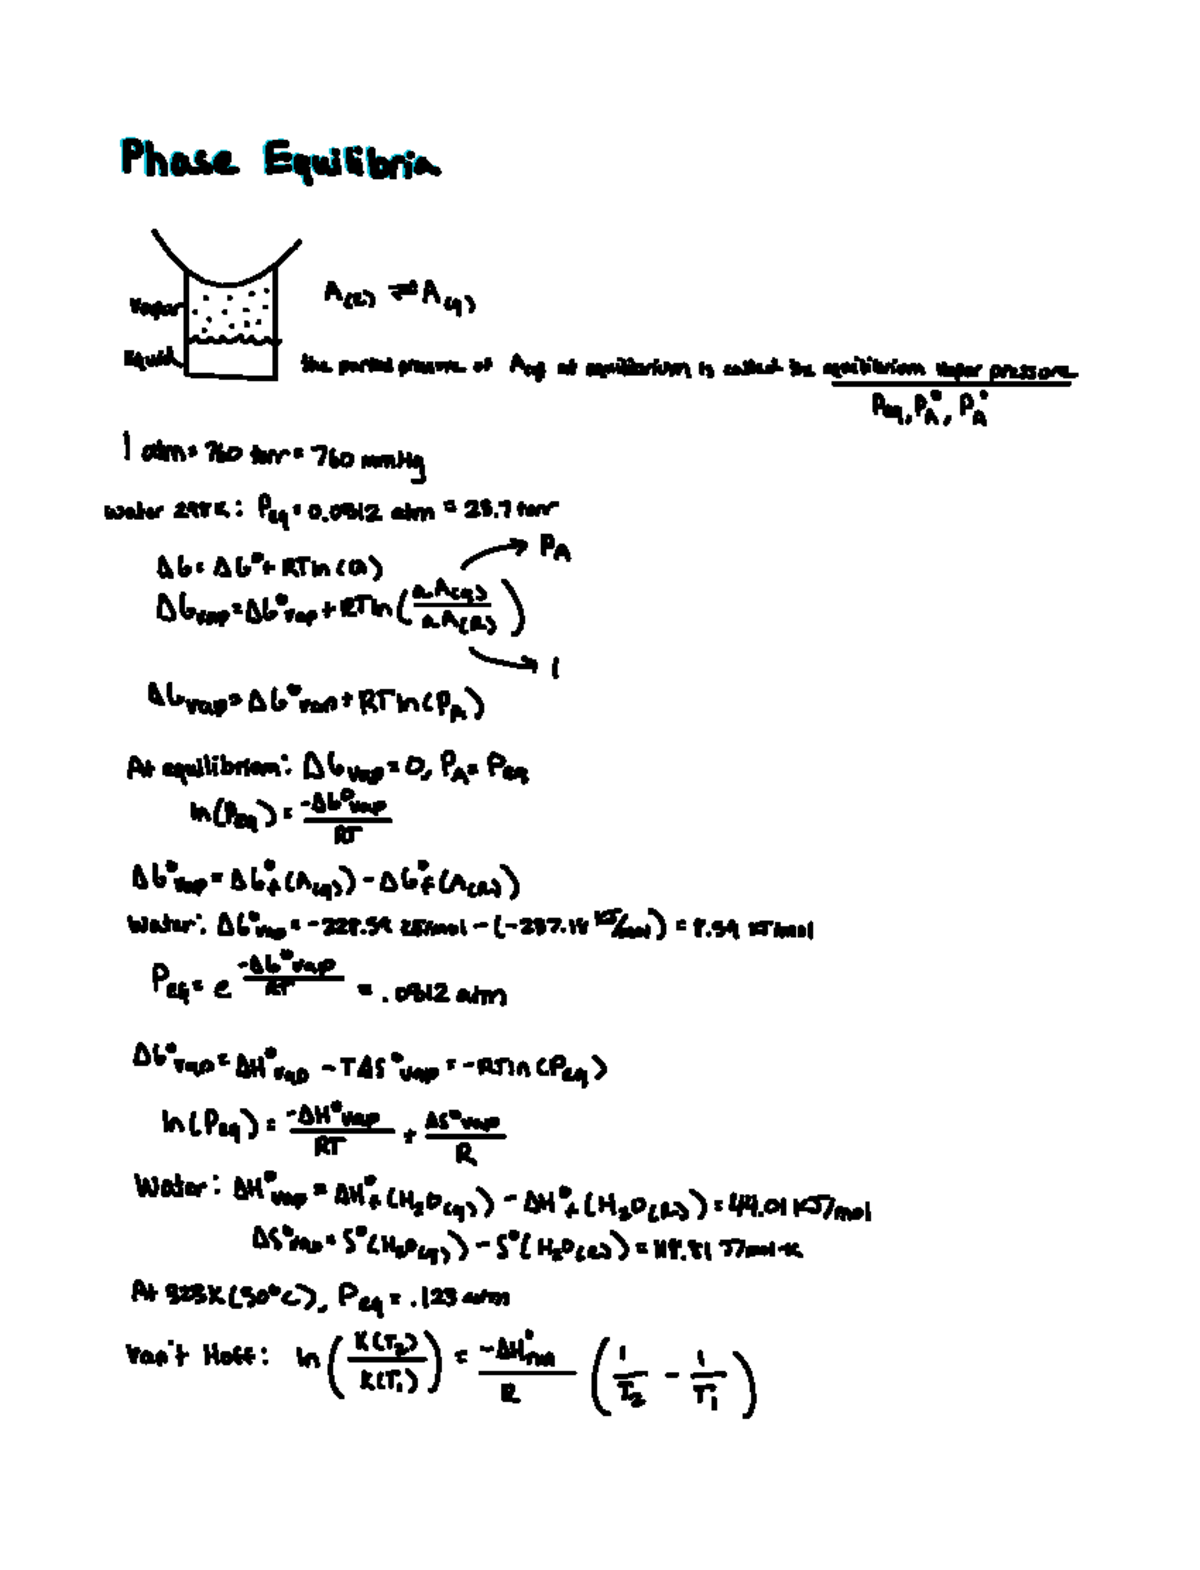 Phase Equilibria
A(l) ⇌ A(g)
Vapor
liquid
the partial pressure of A(g) at equilibrium is called the equilibrium vapor pressure
Peq, P*A, P°A
1 atm = 760 torr = 760 mmHg
Water 298K: Peq = 0.0312 atm = 23.7 torr
→ PA
ΔG = ΔG° + RTln(Q)
ΔGvap = ΔG°vap + RTln(aA(g)/aA(l))
→ 1
ΔGvap = ΔG°vap + RTln(PA)
At equilibrium: ΔGvap = 0, PA = Peq
ln(Peq) = -ΔG°vap/RT
ΔG°vap = ΔG°f(A(g)) - ΔG°f(A(l))
Water: ΔG°vap = -228.59 KJ/mol - (-237.18 KJ/mol) = 8.59 KJ/mol
Peq = e^(-ΔG°vap/RT) = .0312 atm
ΔG°vap = ΔH°vap - TΔS°vap = -RTln(Peq)
ln(Peq) = -ΔH°vap/RT + ΔS°vap/R
Water: ΔH°vap = ΔH°f(H2O(g)) - ΔH°f(H2O(l)) = 44.01 KJ/mol
ΔS°vap = S°(H2O(g)) - S°(H2O(l)) = 118.81 J/mol·K
At 323K(50°C), Peq = .123 atm
Van't Hoff: ln(K(T2)/K(T1)) = -ΔH°rxn/R (1/T2 - 1/T1)